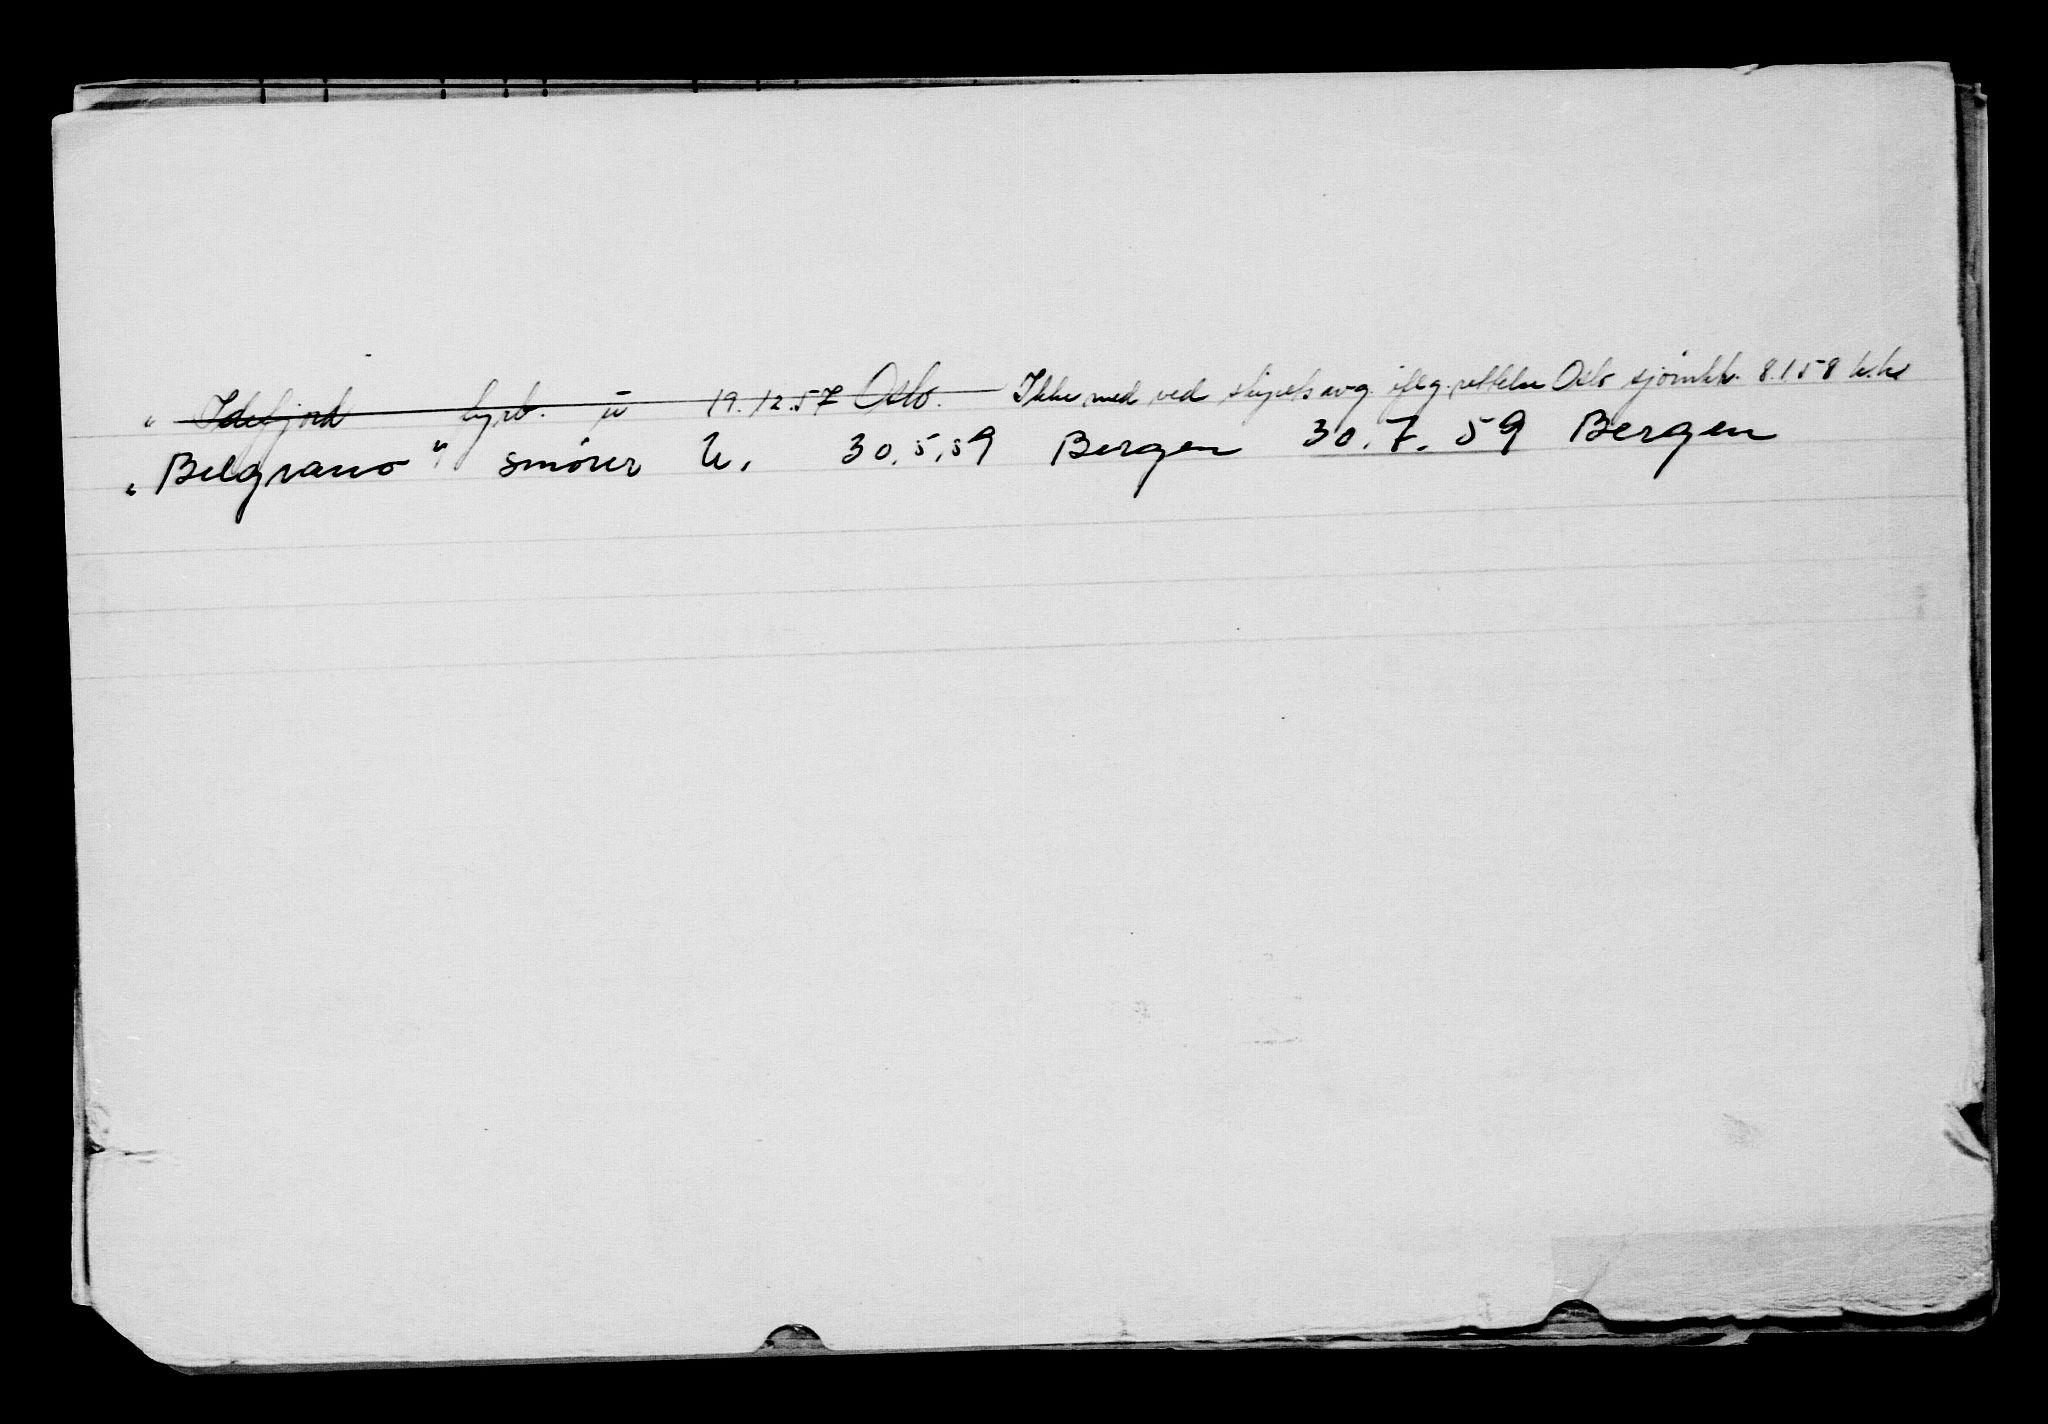 „ Idefjord fyrb. u 19.12.57 Oslo. Ikke med ved skipets avg. iflg. rettelse Oslo sjømkt. 8.1.58
„ Belgrano " smører U. 30.5.59 Bergen 30.7.59 Bergen